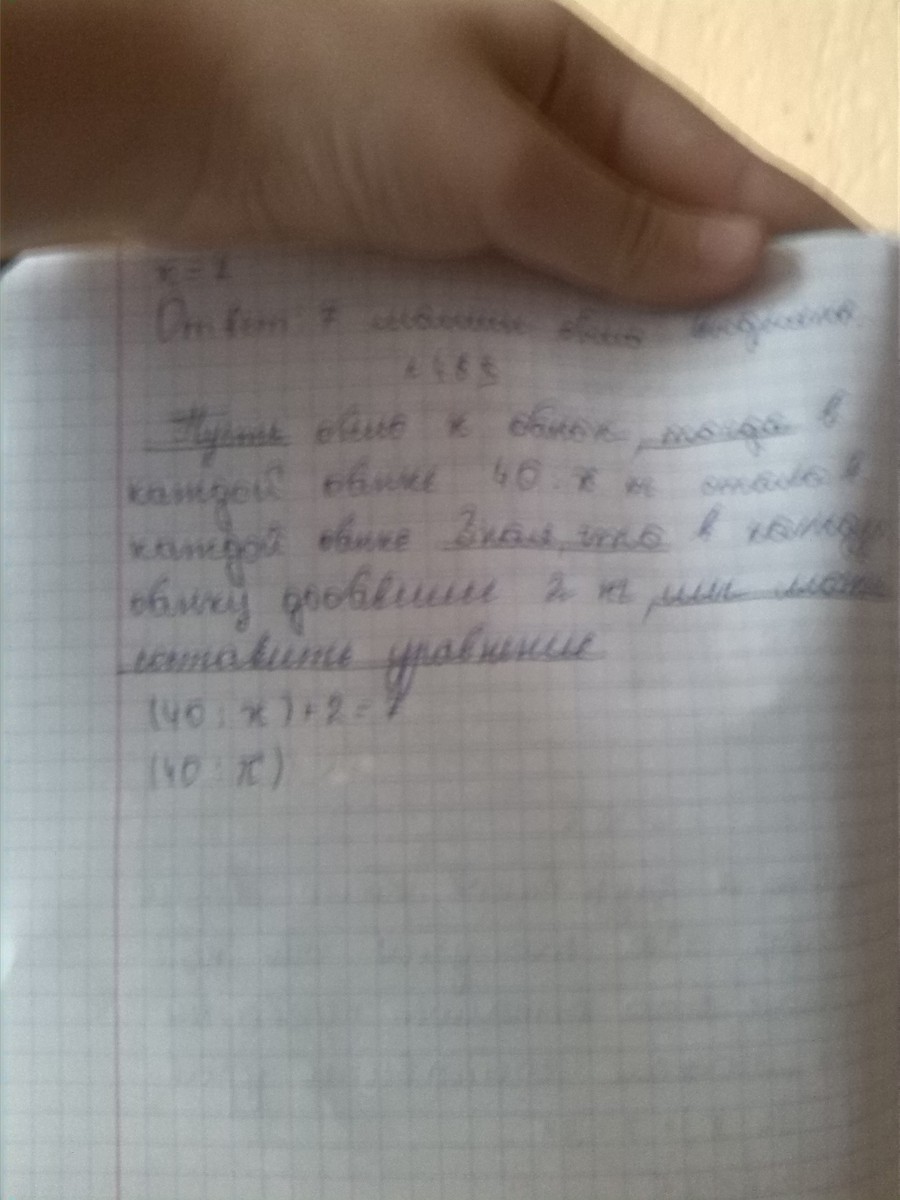 x = 1
Ответ 7 машин было
Пусть было x банок, тогда в
каждой банке 40 : x
каждой банке Зная, что в кажду
банку добавили 2 можн
составить уравнение
(40 : x) + 2 = 7
(40 : x)